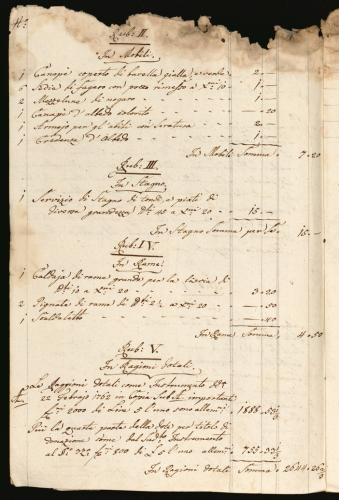 Rub: II.
In Mobili
1 Canapè coperto di bavella gialla, e verde 2.—
6 Sedia di fagaro con pozzo rimesso a 10 1.—
2 Mezzelune di nogaro 1.—
1 Canapè d'albedo colorito —.20
1 Armajo per gli abiti con Seratura 2.—
1 Credenza d'Albedo 1.—
In Mobili Somma 7.20
Rub: III.
In Stagno
1 Servizio di Stagno di tondi, e piatti di
diversa grandezza 45 a 20 15.—
In Stagno Somma per se 15.—
Rub: IV.
In Rame
1 Caldaja di rame grande per la liscia di
10 a 20 3.20
2 Pignate di rame di 2½ a 20 —.50
1 Scaldaletto —.40
In Rame Somma 4.50
Rub: V.
In Ragioni dotali.
Le Raggioni dotali come Instrumento
22 Febrajo 1762 in Copia Sub importanti
2000 di Lire 5 l'uno sono allem: 1888.53⅓
Più la quarta parte della dote per titolo di
donazione come dal Instrumento
al 322 800 di £ 5 l'uno allem: 755.33⅓
In Ragioni dotali Somma 2644.26⅔